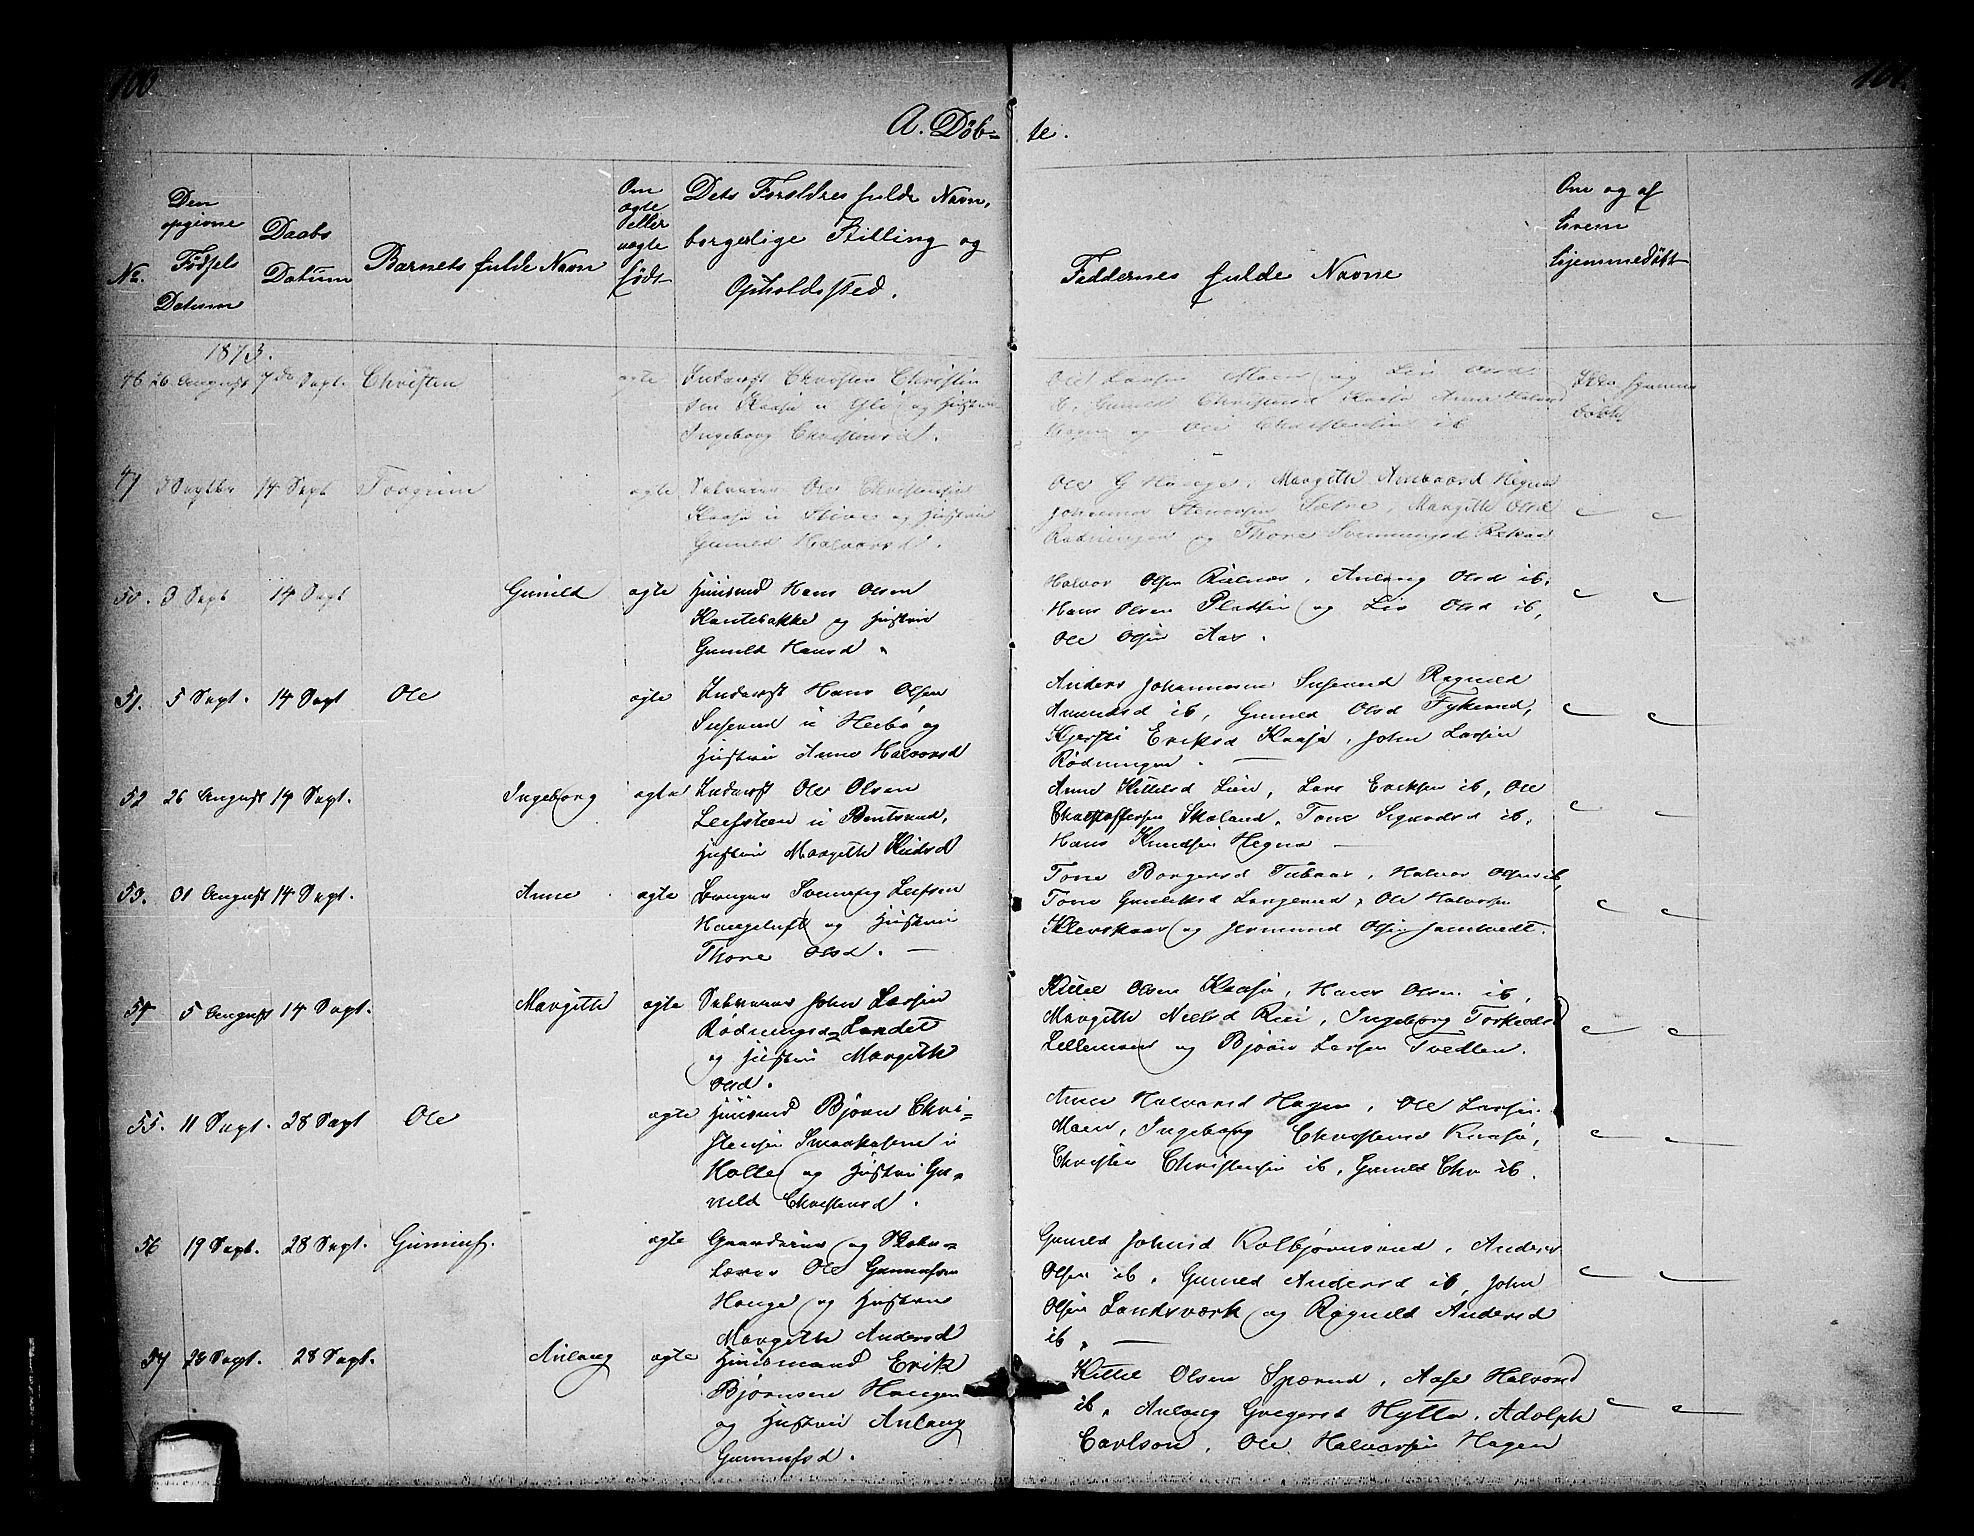 100
101.
A. Döb=
te.
No.
Den opgivne Födsels Datum
Daabs Datum
Barnets fulde Navn
Om ægte eller uægte födt
Dets Forældres fulde Navn, borgerlige Stilling og Opholdssted.
Faddernes fulde Navne
Om og af hvem hjemmedöbt
1873.
46 26 August 7de Sept. Christen ægte Inderst Christen Christen
sen Kaasa og Hustru
Ingeborg Christensd.
Ole Larsen Moen og Liv Olsd
ib, Gunild Christensd Kaasa Anne Halvorsd
Hagen og Ole Christensen ib
Ikke hjemme
döbt.
47 Septbr 14 Sept ægte Selveier Ole Christensen
Kaasa og Hustru
Gunild Halvorsd.
Ole G Hauge, Margith Hegna
Johannes Stenersen Sætre, Margith Olsd
Rødningen og Thone Svennungsd
50. 3 Sept 14 Sept Gunild ægte Huusmd Hans Olsen
Kantebakke og Hustru
Gunild Hansd
Halvor Olsen, Anlaug Olsd ib,
Hans Olsen Pladsen og Liv Olsd ib,
Ole Olsen Aas.
51. 5 Sept. 14 Sept Ole ægte Inderst Hans Olsen
i og
Hustru Anne Halvorsd
Anders Johannesen Ragnild
Amundsd ib, Gunild Olsd
Kjersti Eriksd Kaasa, John Larsen
Rødningen.
52 26 August 14 Sept. Ingeborg ægte Inderst Ole Olsen
Leifsteen i
Hustru Margith
Anne Kittelsd Lien, Lars Eriksen ib, Ole
Christoffersen Skoland, Tone Sigurdsd ib,
Hans Knudsen Hegna
53. 31 August 14 Sept. Anne ægte Svennung Leifsen
Haugeluft og Hustru
Thone Olsd.
Tone Borgersd, Halvor Olsen ib,
Tone Gunleiksd, Ole Halvorsen
Kleivskaas og Jormund Olsen Jamtvedt.
54 5 August 14 Sept. Margith ægte Selveier John Larsen
Rødningsd=Landet
og Hustru Margith
Olsd.
Kittil Olsen Kaasa, Hans Olsen ib,
Margith Nielsd, Ingeborg
Lillemoen og Bjørn Larsen Tvedten.
55. 11 Sept. 28 Sept Ole ægte Huusmd Bjørn Chri=
stensen i
Holte og Hustru Gu=
nild Christensd.
Anne Halvorsd Hagen, Ole Larsen
Moen, Ingeborg Christensd Kaasa,
Christen Christensen ib, Gunild Chr ib.
56 19 Sept. 28 Sept. Gunnuf. ægte Gaardeier og Skole=
lærer Ole Gunnufsen
Hauge og Hustru
Margith Andersd
Gunild Johnsd Kolbjørnsrud, Anders
Olsen ib, Gunild Andersd ib, John
Olsen Landsværk og Ragnild Andersd
ib.
57 23 Sept. 28 Sept. Anlaug ægte Huusmand Erik
Bjørnsen Haugen
og Hustru Anlaug
Gunnufsd.
Kittil Olsen, Aase Halvorsd
ib, Anlaug Gregersd Hytta, Adolph
Carlson, Ole Halvorsen Hagen